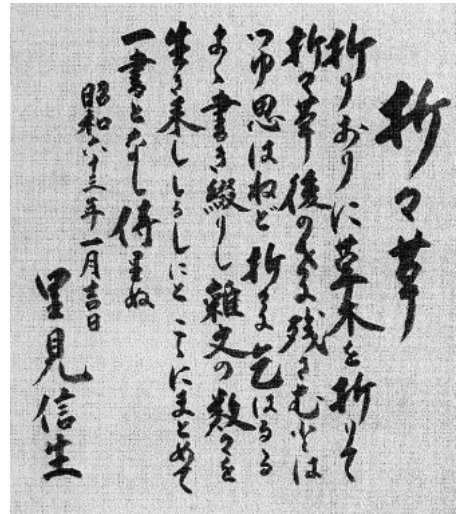 折々草
折りおりに草木を折りて
折々草後の世に残さむとは
つゆ思はねど折々に乞はるる
まゝ書き綴りし雑文の数々を
生き来ししるしにとここにまとめて
一書となし得重ぬ
昭和六十三年一月吉日
里見信生